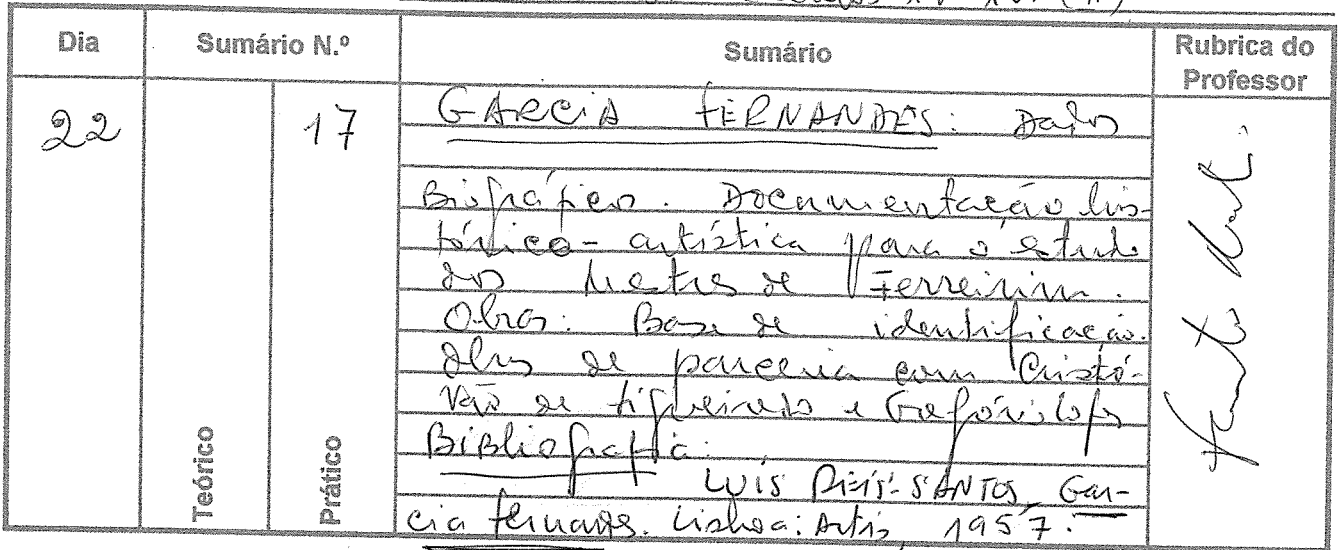 séculos XV-XVI (II)
Dia
Sumário N.º
Sumário
Rubrica do
Professor
22
17
GARCIA FERNANDES: Dados
Biográficos. Documentação his-
tórico-artística para o estudo
dos Mestres de Ferreirim.
Obras: Base de identificação.
Obras de parceria com Cristó-
vão de Figueiredo e Gregório Lopes
Bibliografia:
LUÍS REIS-SANTOS, Gar-
cia Fernandes. Lisboa: Artis, 1957.
Teórico
Prático